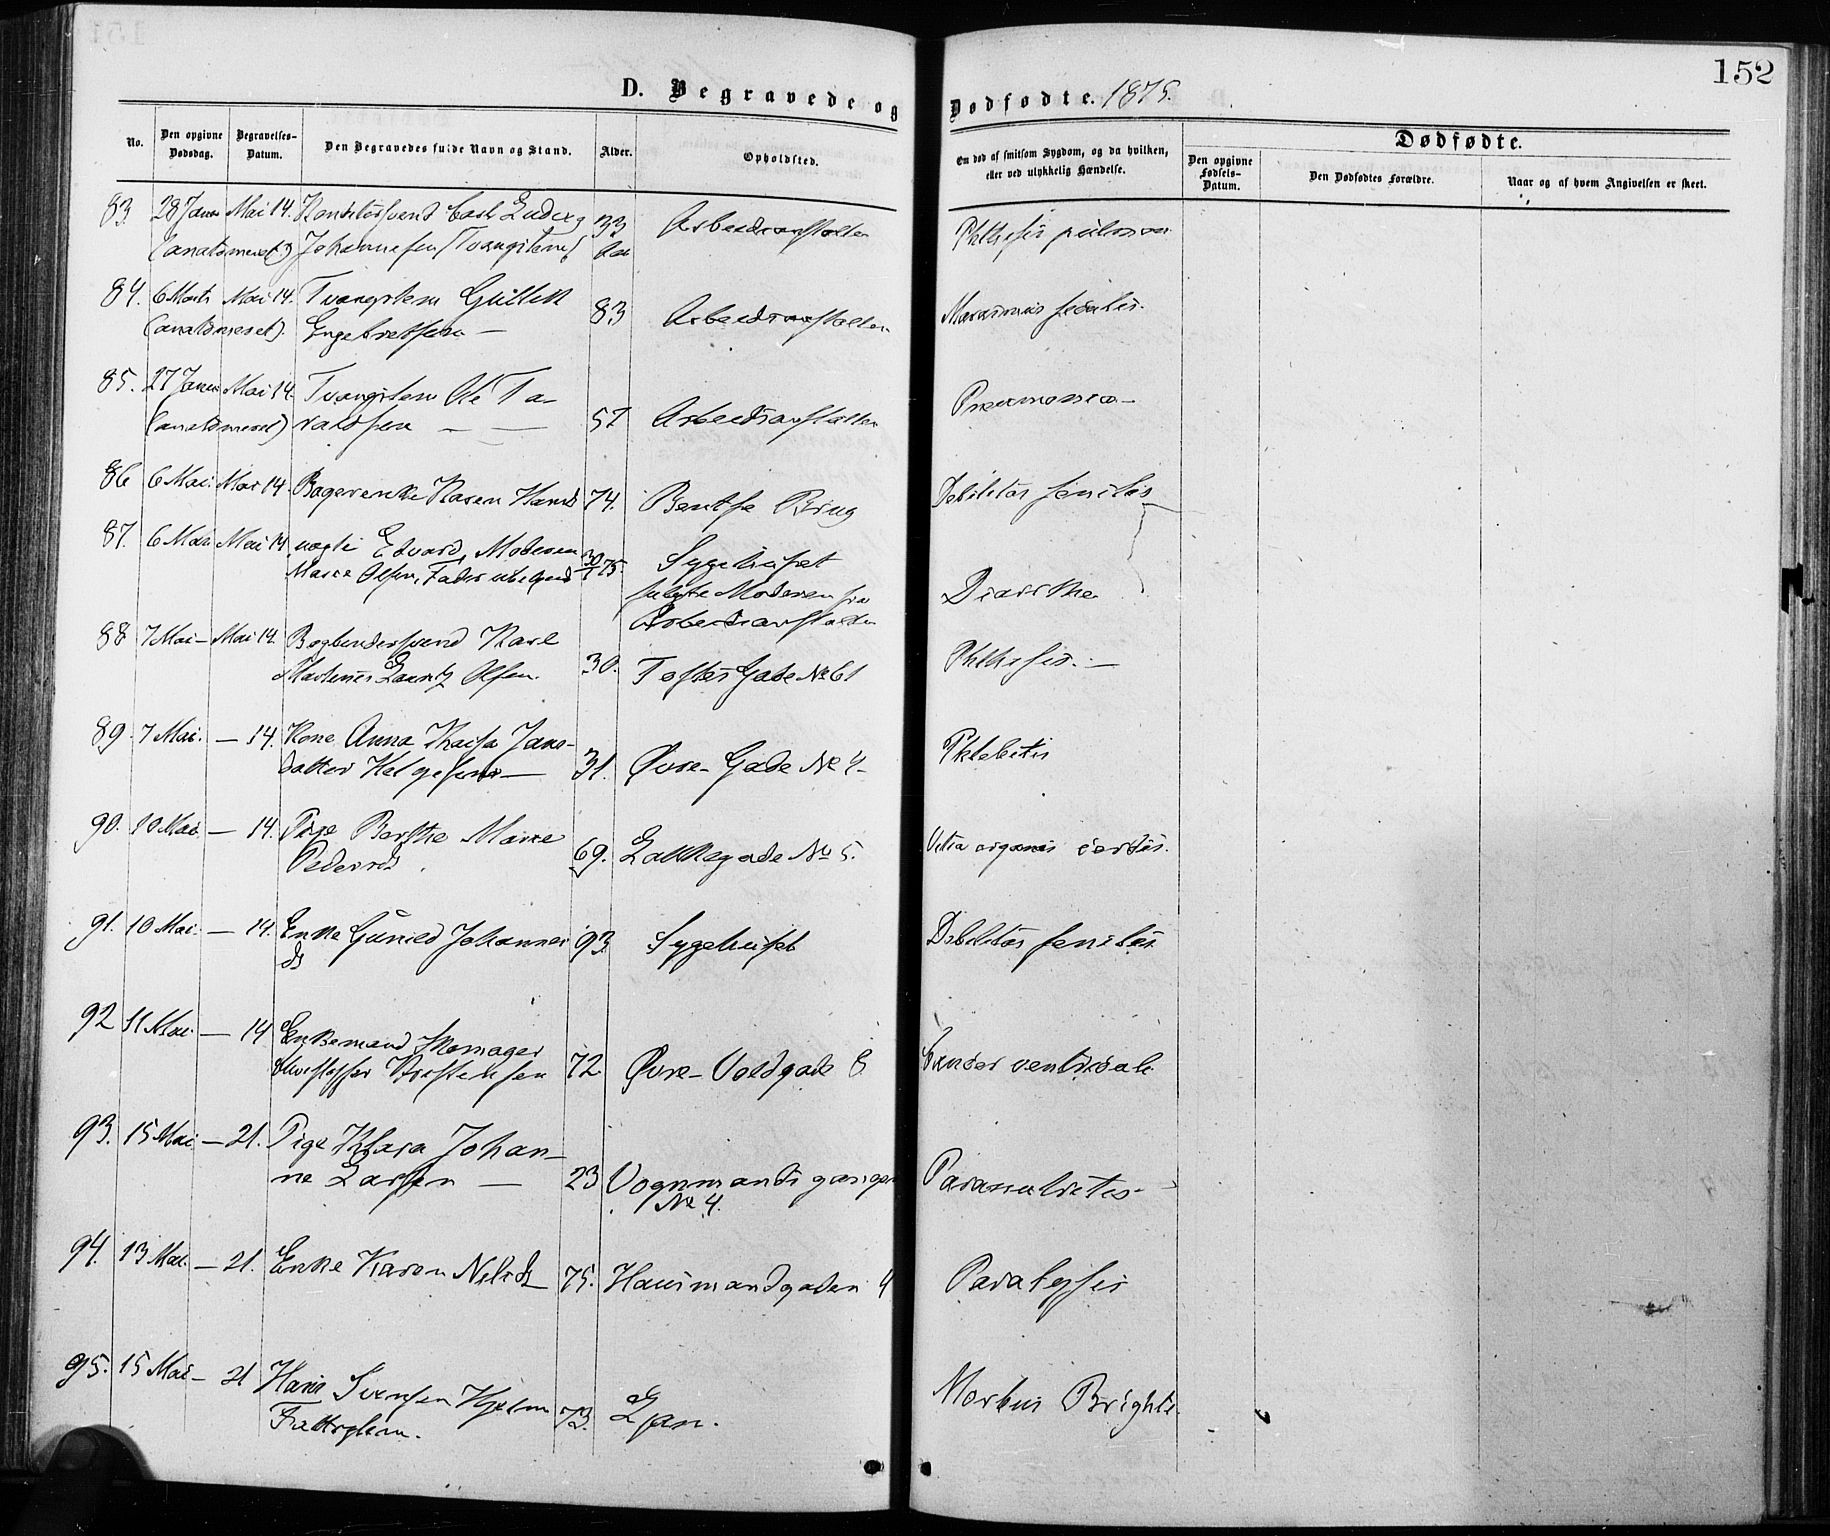 152
D. Begravede og Dødfødte. 1875.
No.
Den opgivne Dødsdag.
Begravelses-Datum.
Den Begravedes fulde Navn og Stand.
Alder.
Opholdsted.
Om død af smitsom Sygdom, og da hvilken, eller ved ulykkelig Hændelse.
Dødfødte.
Den opgivne Fødsels-Datum.
Den Dødfødtes Forældre.
Naar og af hvem Angivelsen er skeet.
83 28 Janu Mai 14. Carl Ludvig 33 Arbeidsanstalten Phthisis pulmon
(anatomeret) Johannesen (Tvangslem)
84. 6 Marts Mai 14. Tvangslem Gullik 83 Arbeidsanstalten Marasmus senilis.
(anatomeret). Engebretsen —
85. 27 Janu Mai 14. Tvangslem Ole To- 57 Arbeidsanstalten Pneumonia —
(anatomeret) raldsen — —
86 6 Mai. Mai 14. Bagerenke Karen Hansd 74. Bentse Brug Debilitas senilis
87. 6 Mai Mai 14 uægte Edvard, Moderen 30/1 75. Sygehuset
Marie Olsen, Fader ubekjend fulgte Moderen fra Diarrhe
Arbeidsanstalten
88 7 Mai — Mai 14. Bogbindersvend Karl
Martinus Lauritz Olsen. 30. Toftes Gade No 61 Phthisis. —
89. 7 Mai. — 14. Kone Anna Kaisa Jans-
datter Helgesen — 31. Øvre Gade No 4 Phlebitis
90. 10 Mai. — 14. Pige Berthe Marie
Pedersd. 69. Lakkegade No 5. Vitia organis cordis.
91. 10 Mai. — 14. Enke Gunild Johannes 93. Sygehuset Debilitas senilis
ds
92 11 Mai. — 14 Enkemand Skomager
Christoffer Torstensen 72 Øvre Voldgade 8 Cancer ventriculi
93. 15 Mai — 21. Pige Klara Johan-
ne Larsen — 23 Vognmandsgangen
No 4.
94. 13 Mai. — 21. Enke Karen Nilsd. 75. Hausmandsgaden 4 Paralysis
95. 15 Mai — 21 Hans Svensen Hjelm
Fattiglem. 73. Ljan. Morbus Brighti.